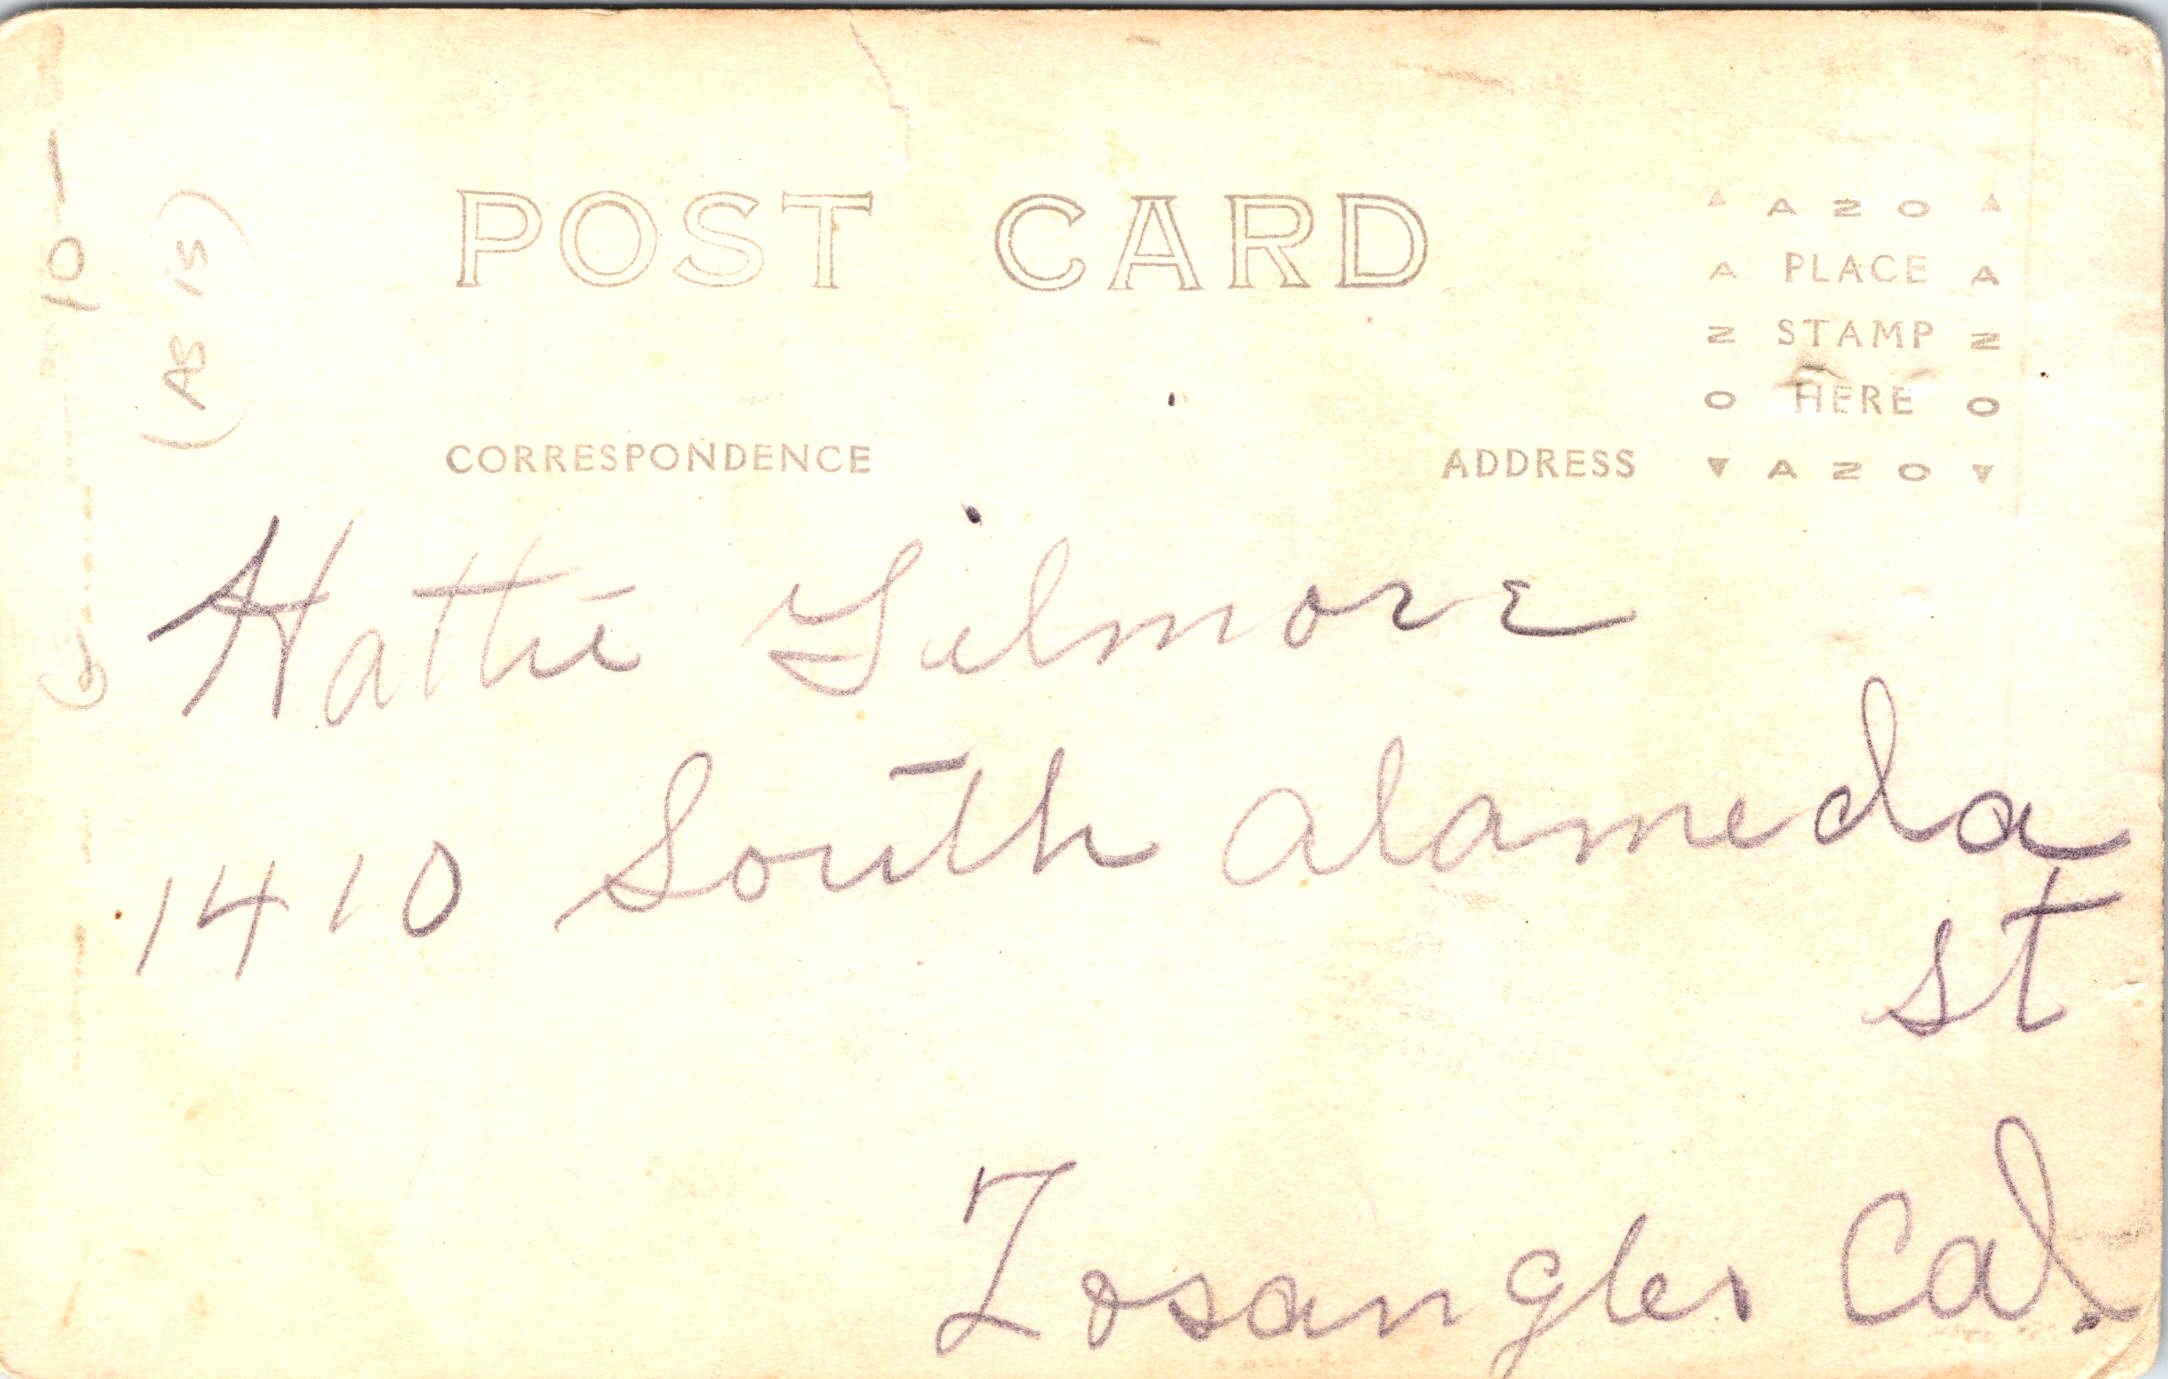 POST CARD
A Z O
A PLACE A
Z STAMP Z
O HERE O
A Z O
CORRESPONDENCE
ADDRESS
Hattie Gilmore
1410 South Alameda
St
Losangles Cal.
10—
(AS IS)